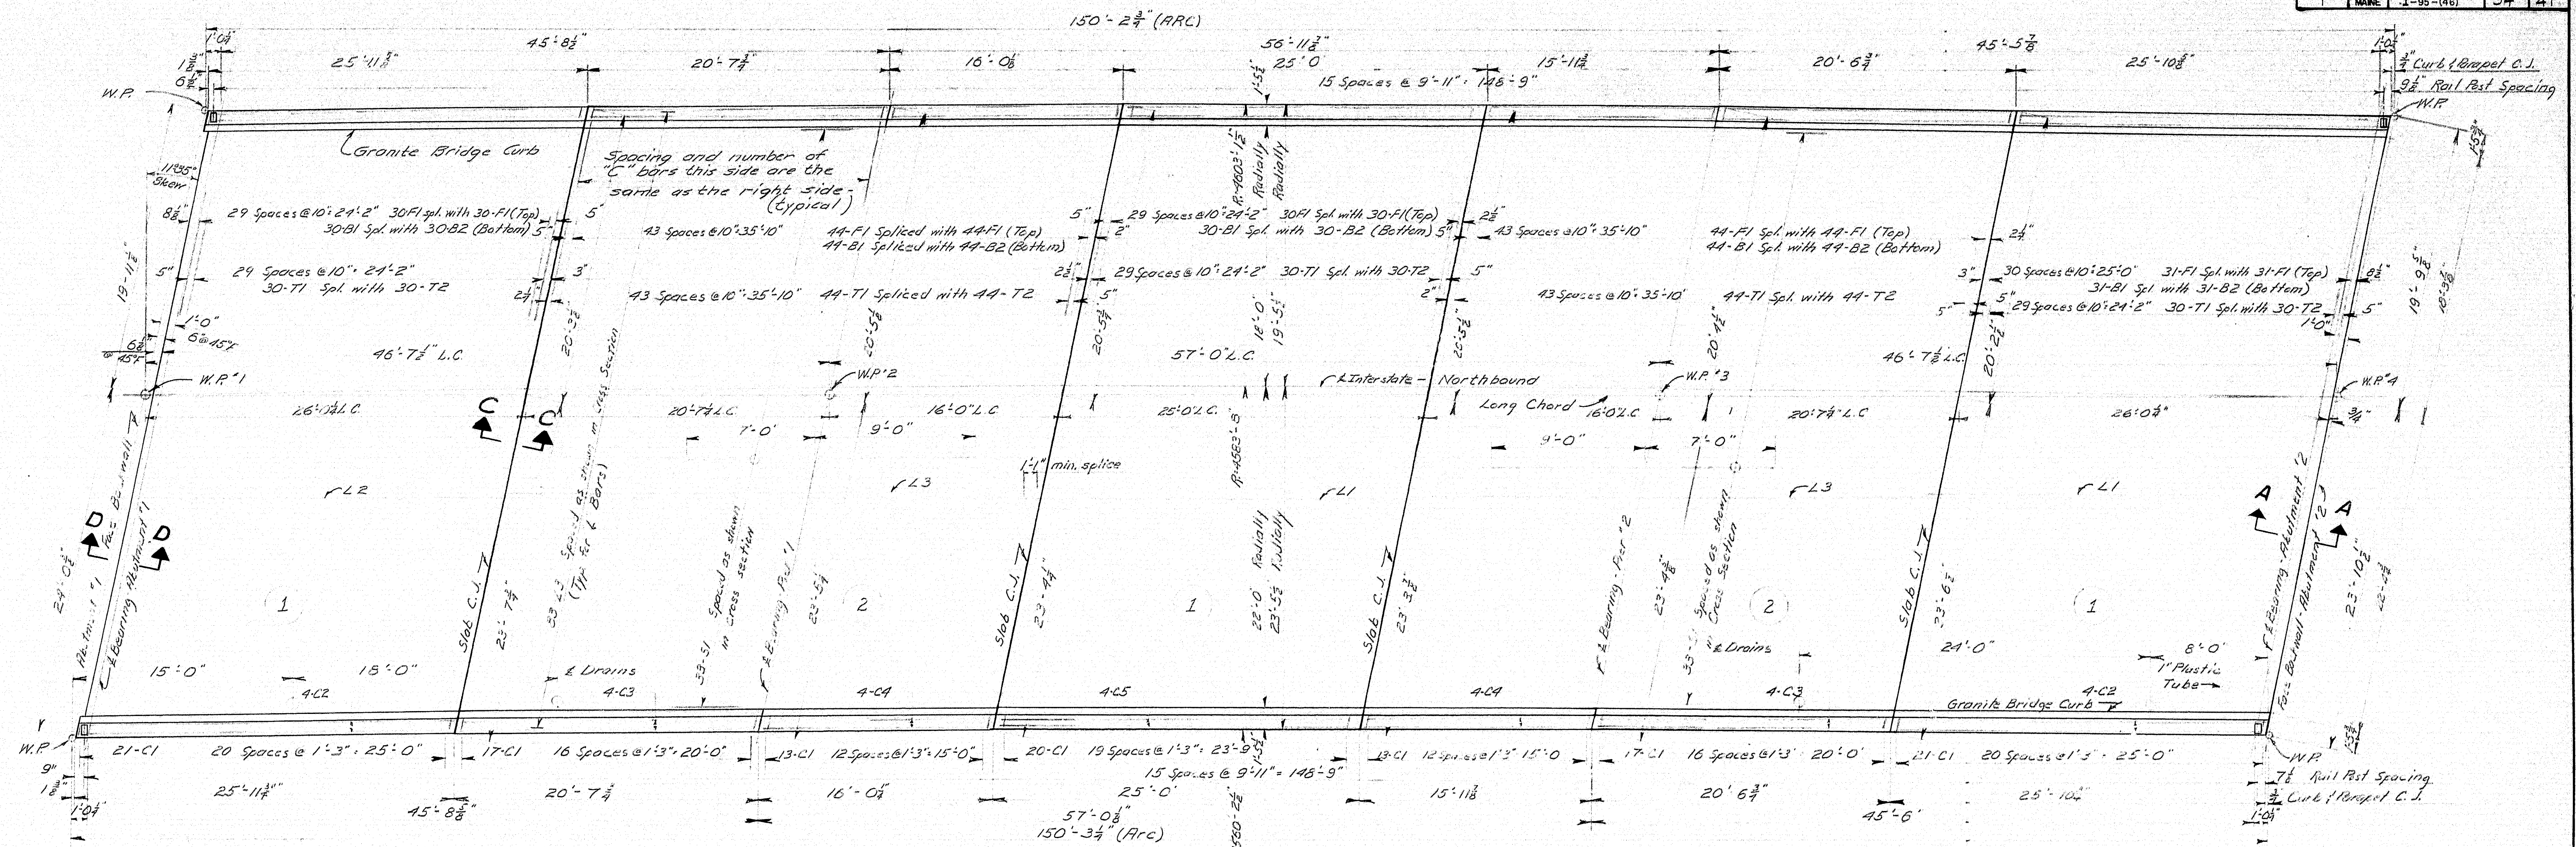 MAINE I-95-(46) 54 41
150'-2 3/4" (ARC)
45'-8 1/2" 56'-11 3/8" 45'-5 7/8
25'-11 3/8" 20'-7 3/4" 16'-0 1/8 25'0" 15'-11 3/4 20'-6 3/4" 25'-10 5/8"
15 Spaces @ 9'-11" = 148'-9"
3/4" Curb & Parapet C.J.
9 1/2" Rail Post Spacing
W.P.
W.P.
Granite Bridge Curb
Spacing and number of
"C" bars this side are the
same as the right side-
(typical)
R=4603'-1 1/2"
Radially
Radially
11°35"
Skew
8 1/2" 29 Spaces @10"=24'-2" 30F1 spl. with 30-F1 (Top) 5"
30-B1 Spl. with 30-B2 (Bottom) 5"
43 Spaces @10"=35'-10" 44-F1 Spliced with 44-F1 (Top)
44-B1 Spliced with 44-B2 (Bottom)
5" 29 Spaces @10"=24'-2" 30F1 Spl. with 30-F1 (Top) 2 1/2"
2" 30-B1 Spl. with 30-B2 (Bottom) 5"
43 Spaces @10"=35'-10" 44-F1 Spl. with 44-F1 (Top) 2 1/4"
44-B1 Spl. with 44-B2 (Bottom)
5" 29 Spaces @10"=24'-2" 3"
30-T1 Spl. with 30-T2 2 1/4
43 Spaces @10"=35'-10" 44-T1 Spliced with 44-T2
2 1/2" 29 Spaces @10"=24'-2" 30-T1 Spl. with 30-T2 5"
5" 2"
43 Spaces @10"=35'-10" 44-T1 Spl. with 44-T2
3" 30 Spaces @10"=25'-0" 31-F1 Spl. with 31-F1 (Top) 8 1/2"
31-B1 Spl. with 31-B2 (Bottom)
5" 5" 29 Spaces @10"=24'-2" 30-T1 Spl. with 30-T2 5"
1'-0"
19'-11 1/2"
1'-0"
6@45°F
6 1/2"
@ 45°F
20'-3 1/2"
20'-5 1/8"
20'-5 1/4"
18'-0"
19'-5 1/2"
20'-5 1/2"
20'-4 1/2"
20'-2 1/2"
19'-9 5/8"
46'-7 1/2" L.C. 57'-0" L.C. 46'-7 1/2 L.C.
W.P. #1 W.P. #2 ℄ Interstate - Northbound W.P. #3 W.P. #4
Long Chord
26'-0 1/4 L.C. 20'-7 1/4 L.C. 16'-0" L.C 25'-0 L.C. 16'-0" L.C 20'-7 1/4" L.C 26'-0 1/4" 3/4"
C C
7'-0" 9'-0" 9'-0" 7'-0"
R=4583'-8
1'-1" min. splice
L2 L3 L1 L3 L1
D D A A
Face Backwall
Abutment #1
℄ Bearing Abutment #1
24'-0 1/2"
Slab C.J.
23'-7 3/4"
33-L3 Spaced as shown in Cross Section
(Typ. for L Bars)
33-S1 Spaced as shown
in cross section
℄ Bearing Pier #1
23'-5 1/4
Slab C.J.
23'-4 1/4"
22'-0" Radially
23'-5 1/2 Radially
Slab C.J.
23'-3 7/8"
℄ Bearing - Pier #2
23'-4 3/8"
33-S1 Spaced as shown
Cross Section
Slab C.J.
23'-6 1/2"
℄ Bearing - Abutment #2
Face Backwall - Abutment #2
23'-10 1/2"
1 2 1 2 1
15'-0" 18'-0" ℄ Drains ℄ Drains 24'-0" 8'-0"
1" Plastic
Tube
4-C2 4-C3 4-C4 4-C5 4-C4 4-C3 4-C2
Granite Bridge Curb
W.P.
21-C1 20 Spaces @ 1'-3" = 25'-0" 17-C1 16 Spaces @1'-3" = 20'-0" 13-C1 12 Spaces @1'-3"=15'-0" 20-C1 19 Spaces @ 1'-3" = 23'-9" 13-C1 12 Spaces @1'-3" 15'-0 17-C1 16 Spaces @1'-3" = 20'-0" 21-C1 20 Spaces @ 1'-3" = 25'-0"
W.P.
15 Spaces @ 9'-11" = 148'-9"
7 1/8 Rail Post Spacing
3/4" Curb & Parapet C.J.
9"
1 3/8"
25'-11 3/4" 20'-7 3/4" 16'-0 1/4" 25'-0" 15'-11 7/8 20'6 3/4" 25'-10 3/4"
1'-0 1/4 45'-8 5/8" 57'-0 1/8" 45'-6" 1'-0 1/4
150'-3 1/4" (Arc)